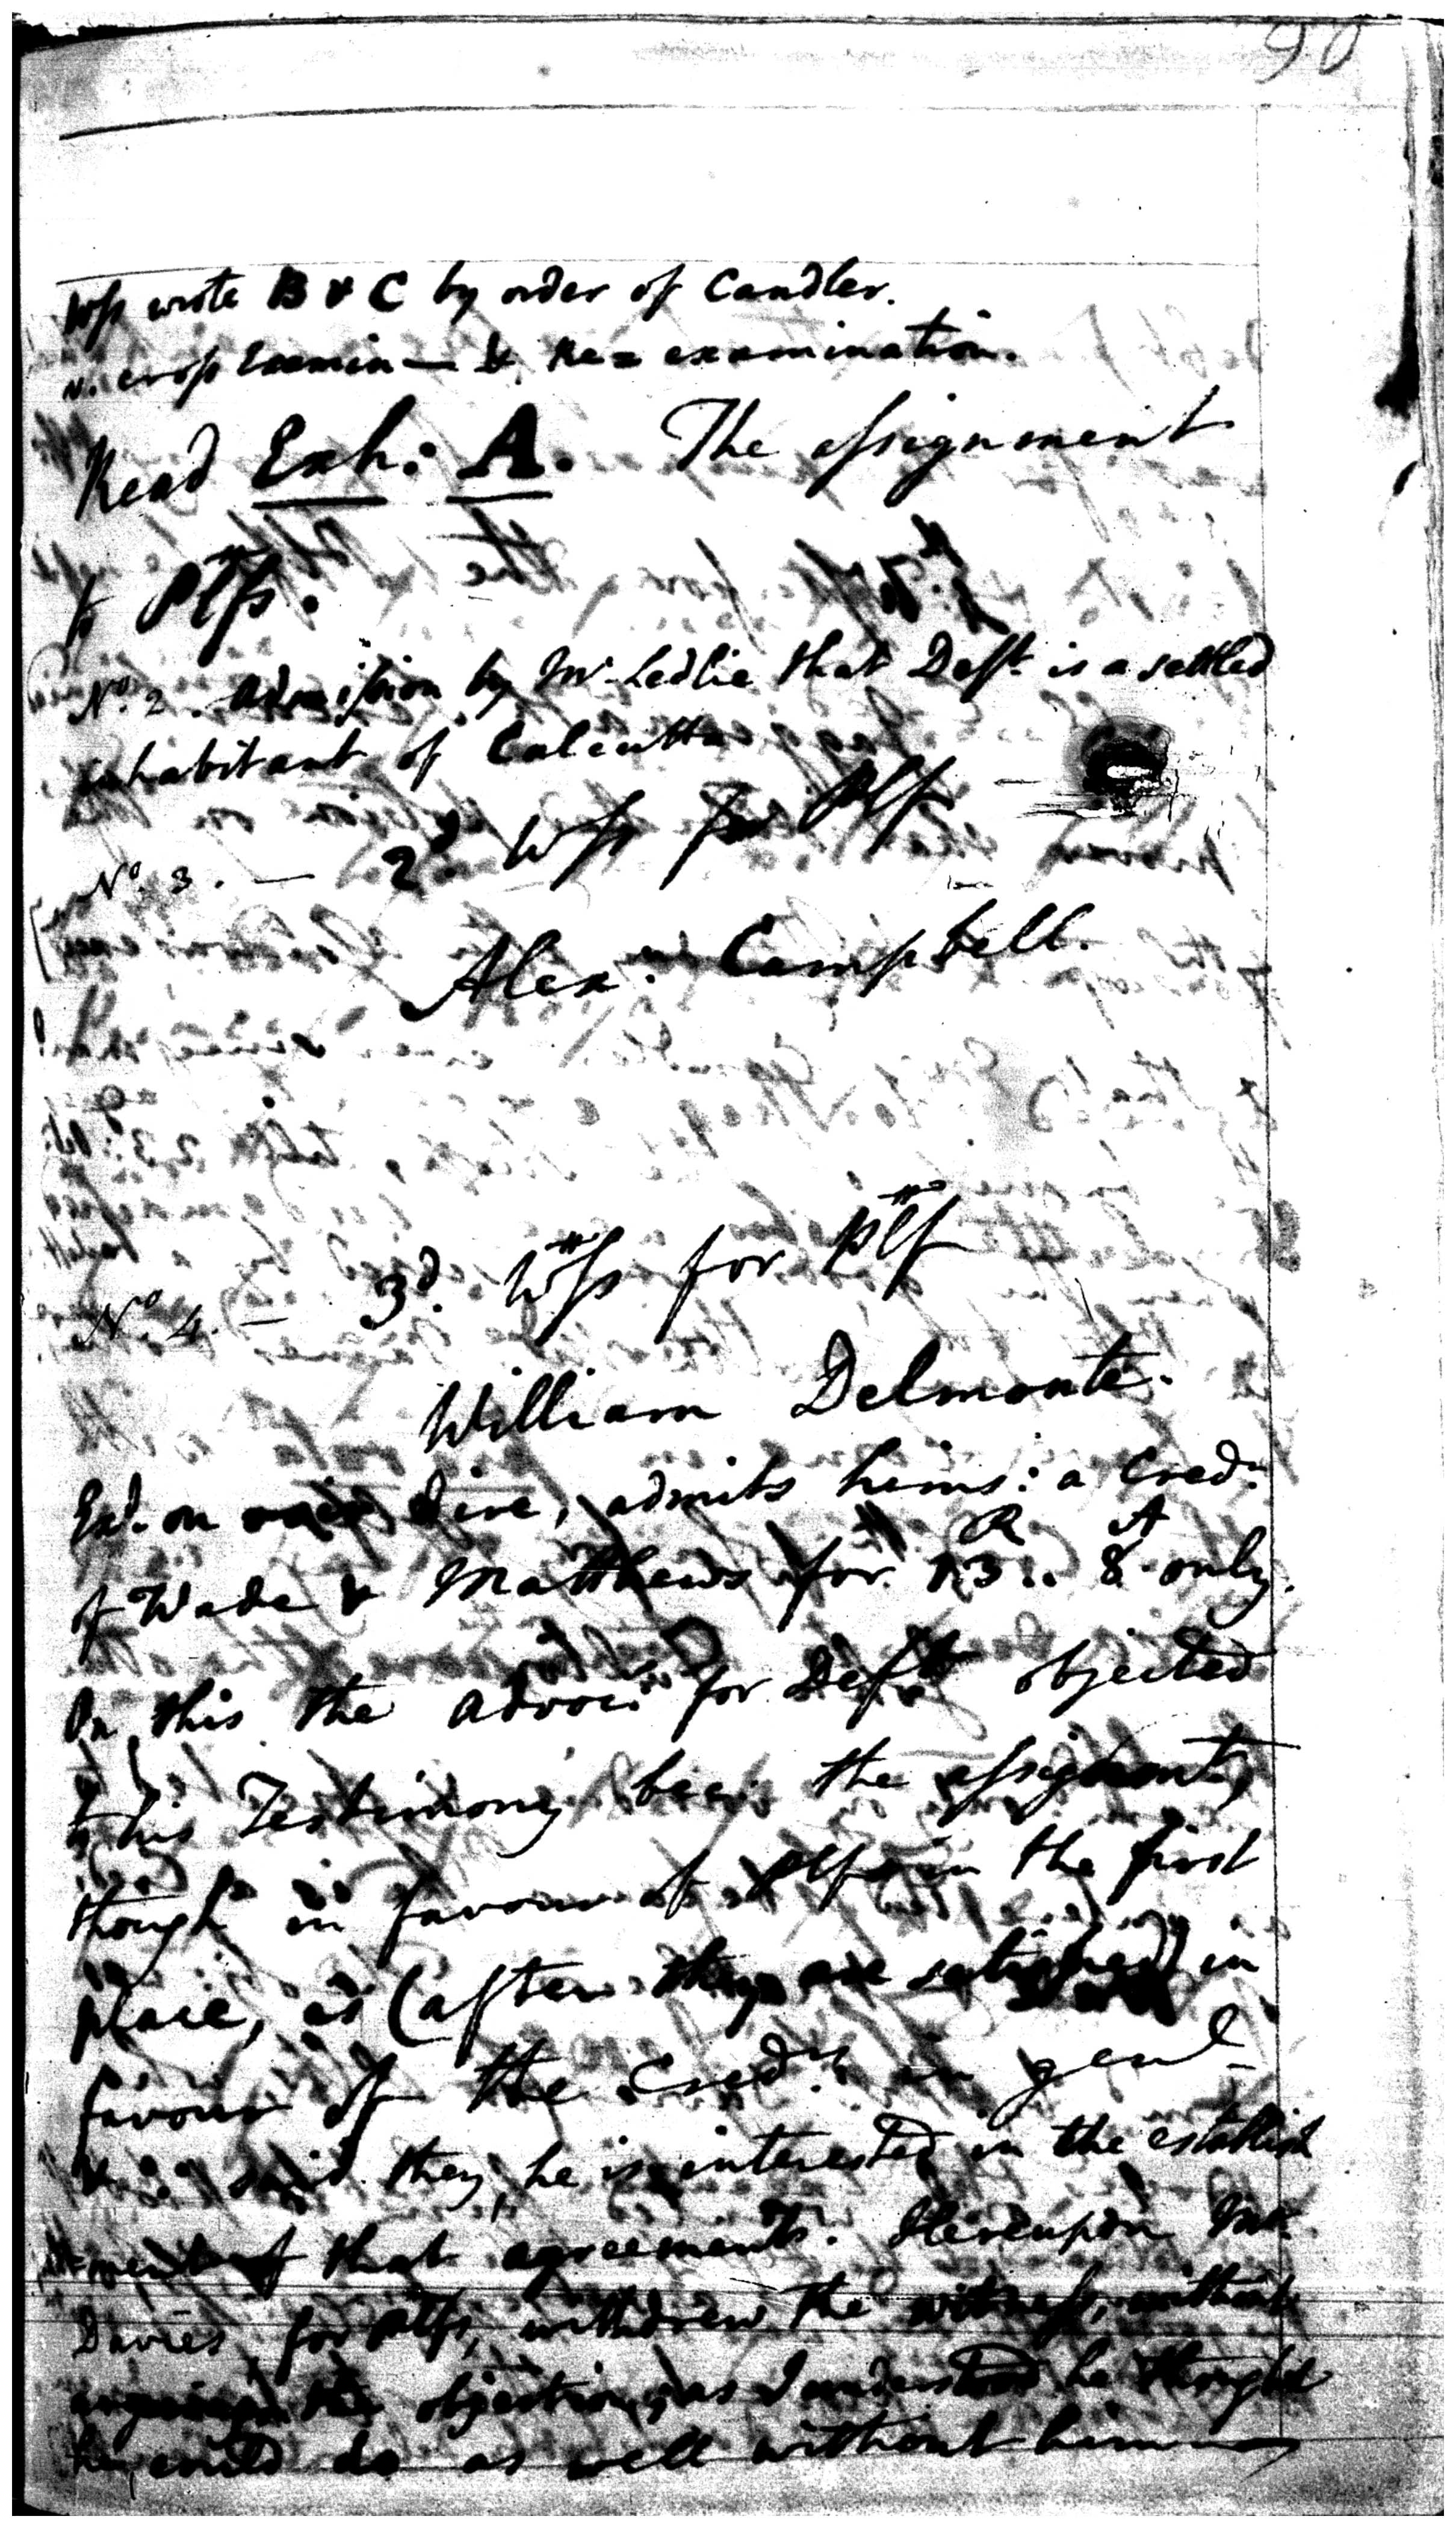 90
Wss wrote B & C by order of Candler.
n. cross Examin— & Re= examination.
Read Exh: A. The assignment
to Pltfs.
No. 2. admission by Mr. Ledlie that Deft. is a settled
inhabitant of Calcutta
No. 3. — 2d. Wss for Pltf
Alexr. Campbell.
No. 4. — 3d. Wtss for Pltf
William Delmonte.
Exd. on voir dire, admits hims: a Credr.
of Wade & Matthews for R 13.. A 8 only.
On this the advoc. for Deft. objected
to his Testimony bec. the assignmt,
though in favour of Pltfs in the first
place, is (after they are satisfied) in
favour of the Credrs. in genl
& said they, he is interested in the establish
ment of that agreement. Hereupon Mr.
Davies for Pltfs, withdrew the witness, without
the objection, as I understood he thought
he could do as well without him—